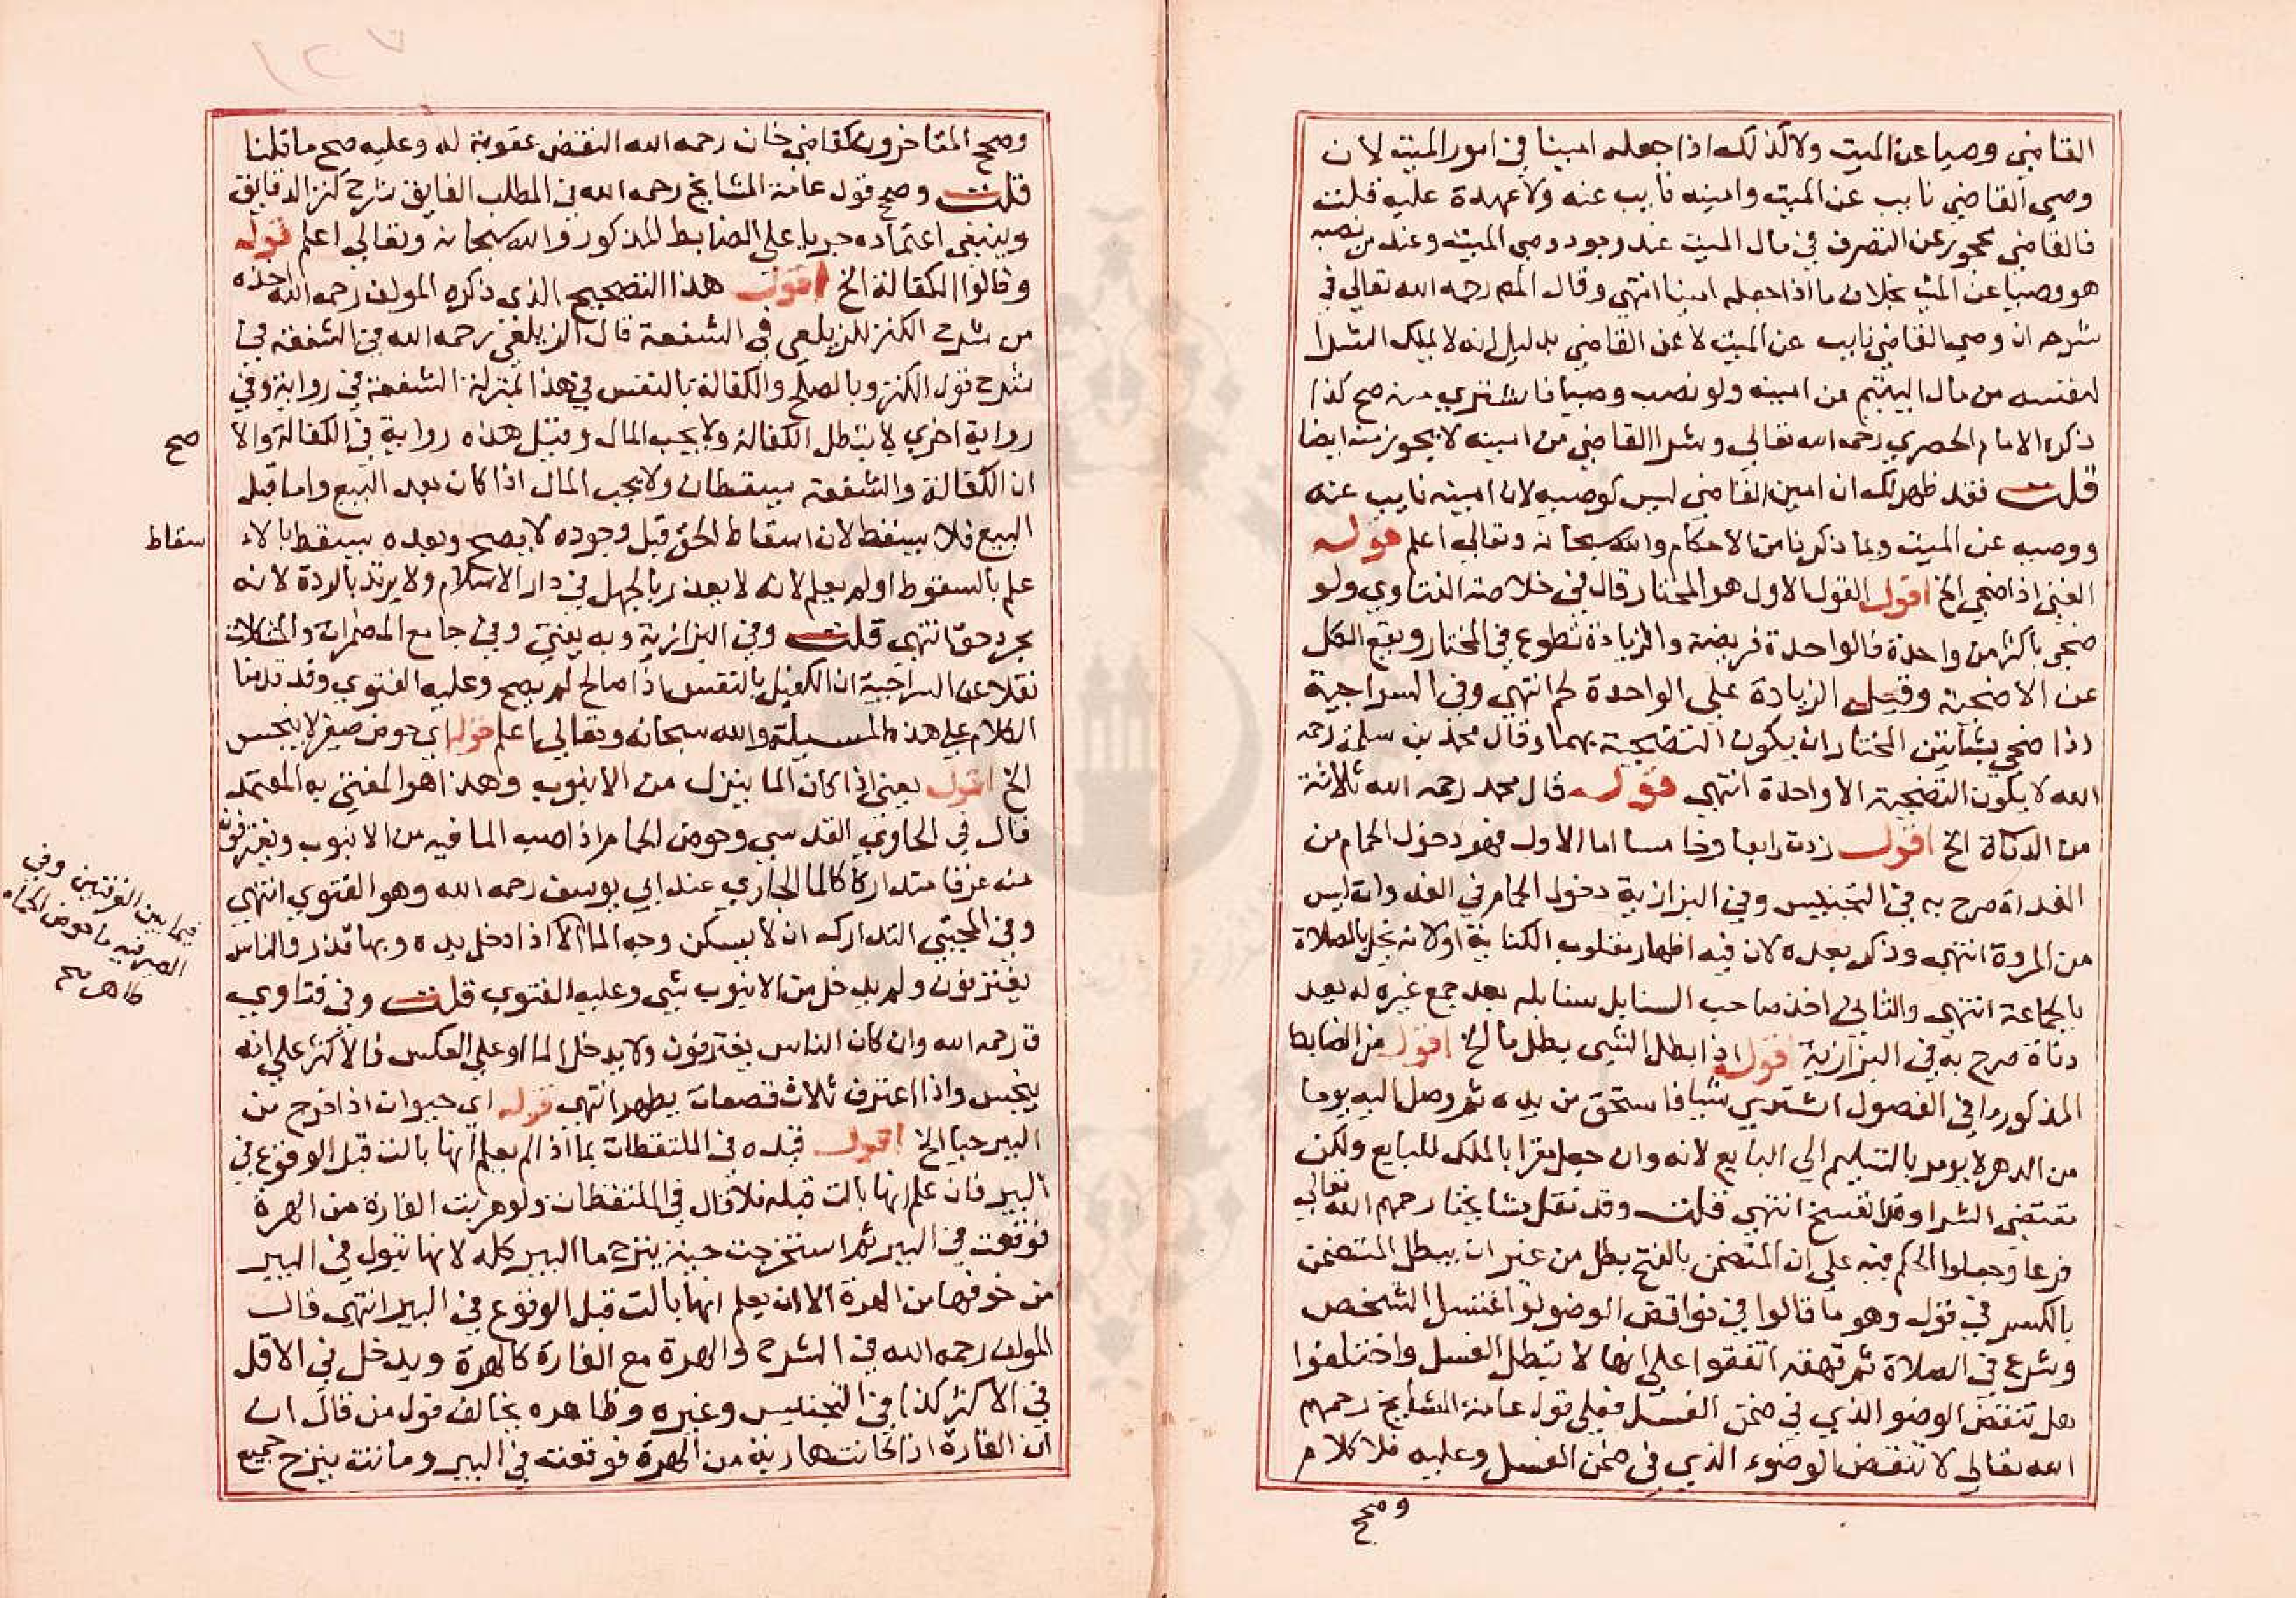 القاضي وصيا عن الميت ولا كذلك اذا جعله امينا في امور الميت لان
وصي القاضي نايب عن الميت وامينه نايب عنه ولا عهدة عليه قلت
فالقاضي محجور عن التصرف في مال الميت عند وجود وصي الميت وعند من نصبه
هو وصيا عن الميت بخلاف ما اذا جعله امينا انتهي وقال المص رحمه الله تعالي في
شرحه ان وصي القاضي نايب عن الميت لا عن القاضي بدليل انه لا يملك الشرا
لنفسه من مال اليتيم من امينه ولو نصب وصيا فاشتري منه صح كذا
ذكره الامام الحصري رحمه الله تعالي وشرا القاضي من امينه لا يجوز منه ايضا
قلت فقد ظهر لك ان امين القاضي ليس كوصيه لان امينه نايب عنه
ووصيه عن الميت وبما ذكرنا من الاحكام والله سبحانه وتعالي اعلم قوله
الغني اذا ضحي الخ اقول القول الاول هو المختار قال في خلاصة الفتاوي ولو
ضحي باكثر من واحدة فالواحدة فريضة والزيادة تطوع في المختار ويقع الكل
عن الاضحية وقيل الزيادة علي الواحدة لحم انتهي وفي السراجية
اذا ضحي بشاتين المختار ان يكون التضحية بهما وقال محمد بن سلمة رحمه
الله لا يكون التضحية الا واحدة انتهي قوله قال محمد رحمه الله ثلاثة
من الدناة الخ اقول زدت رابعا وخامسا اما الاول فهو دخول الحمام من
الغداة صرح به في التجنيس وفي البزازية دخول الحمام في الغدوات ليس
من المروة انتهي وذكر بعده لان فيه اظهار مقلوب الكناية اولا نه يخل بالصلاة
بالجماعة انتهي والثاني اخذ صاحب السنابل سنابله بعد جمع غيره له يعد
دناة صرح به في البزازية قوله اذا بطل الشي بطل ما الخ اقول من الضابط
المذكور ما في الفصول اشتري شيا فاستحق من يده ثم وصل اليه يوما
من الدهر لا يومر بالتسليم الي البايع لانه وان جعل مقرا بالملك للبايع ولكن
بمقتضي الشرا وقد انفسخ انتهي قلت وقد نقل مشايخنا رحمهم الله تعالي
فرعا وجعلوا الحكم فيه علي ان المتضمن بالفتح بطل من غير ان يبطل المتضمن
بالكسر في قوله وهو ما قالوا في نواقض الوضو لو اغتسل الشخص
وشرع في الصلاة ثم قهقه اتفقوا علي انها لا تبطل الغسل واختلفوا
هل تنقض الوضو الذي في ضمن الغسل فعلي قول عامة المشايخ رحمهم
الله تعالي لا تنقض الوضوء الذي في ضمن الغسل وعليه فلا كلام
وصحح
وصحح المتاخرون كقاضي خان رحمه الله النقض عقوبة له وعليه صح ما قلنا
قلت وصحح قول عامة المشايخ رحمه الله في المطلب الفايق شرح كنز الدقايق
وينبغي اعتماده جريا علي الضابط المذكور والله سبحانه وتعالي اعلم قوله
وقالوا الكفالة الخ اقول هذا التصحيح الذي ذكره المولف رحمه الله اخذه
من شرح الكنز للزيلعي في الشفعة قال الزيلعي رحمه الله في الشفعة في
شرح قول الكنز وبالصلح والكفالة بالنفس في هذا بمنزلة الشفعة في رواية وفي
رواية اخري لا تبطل الكفالة ولا يجب المال وقيل هذه رواية في الكفالة والا
صح
ان الكفالة والشفعة يسقطان ولا يجب المال اذا كان بعد البيع واما قبل
البيع فلا يسقط لان اسقاط الحق قبل وجوده لا يصح وبعده يسقط بالاء
سقاط
علم بالسقوط او لم يعلم لانه لا يعذر بالجهل في دار الاسلام ولا يرتد بالردة لانه
مجرد حق انتهي قلت وفي البزازية وبه يفتي وفي جامع المضمرات والمشكلات
نقلا عن السراجية ان الكفيل بالنفس اذا صالح لم يصح وعليه الفتوي وقد قدمنا
الكلام علي هذه المسيلة والله سبحانه وتعالي اعلم قوله اي حوض صغير لا ينجس
الخ اقول يعني اذا كان الما ينزل من الانبوب وهذا هو المفتي به المعتمد
قال في الحاوي القدسي وحوض الحمام اذا صب الما فيه من الانبوب ويغترفون
منه غرفا متداركا كالما الجاري عند ابي يوسف رحمه الله وهو الفتوي انتهي
وفي المجتبي التدارك ان لا يسكن وجه الما الا اذا ادخل يده وبها قذر والناس
فيما بين الغرفتين وفي
الصيرفيه ما حوض الحمام
طاهر صح
يغترفون ولم يدخل من الانبوب شي وعليه الفتوي قلت وفي فتاوي
ق رحمه الله وان كان الناس يغترفون ولا يدخل الما او علي العكس فالاكثر علي انه
ينجس واذا اغترف ثلاث قصعات يطهر انتهي قوله اي حيوان اذا خرج من
البير حيا الخ اقول قيده في الملتقطات بما اذا لم يعلم انها بالت قبل الوقوع في
البير فان علم انها بالت قبله فلا قال في الملتقطات ولو هربت الفارة من الهرة
فوقعت في البير ثم استخرجت حية ينزح ما البير كله لانها تبول في البير
من خوفها من الهرة الا ان يعلم انها بالت قبل الوقوع في البير انتهي قال
المولف رحمه الله في الشرح والهرة مع الفارة كالهرة ويدخل في الاقل
في الاكثر كذا في التجنيس وغيره وظاهره يخالف قول من قال ان
ان الفارة اذا كانت هاربة من الهرة فوقعت في البير وماتت ينزح جميع